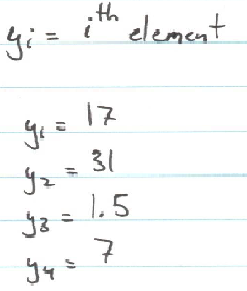 yi = ith element
y1 = 17
y2 = 31
y3 = 1.5
y4 = 7